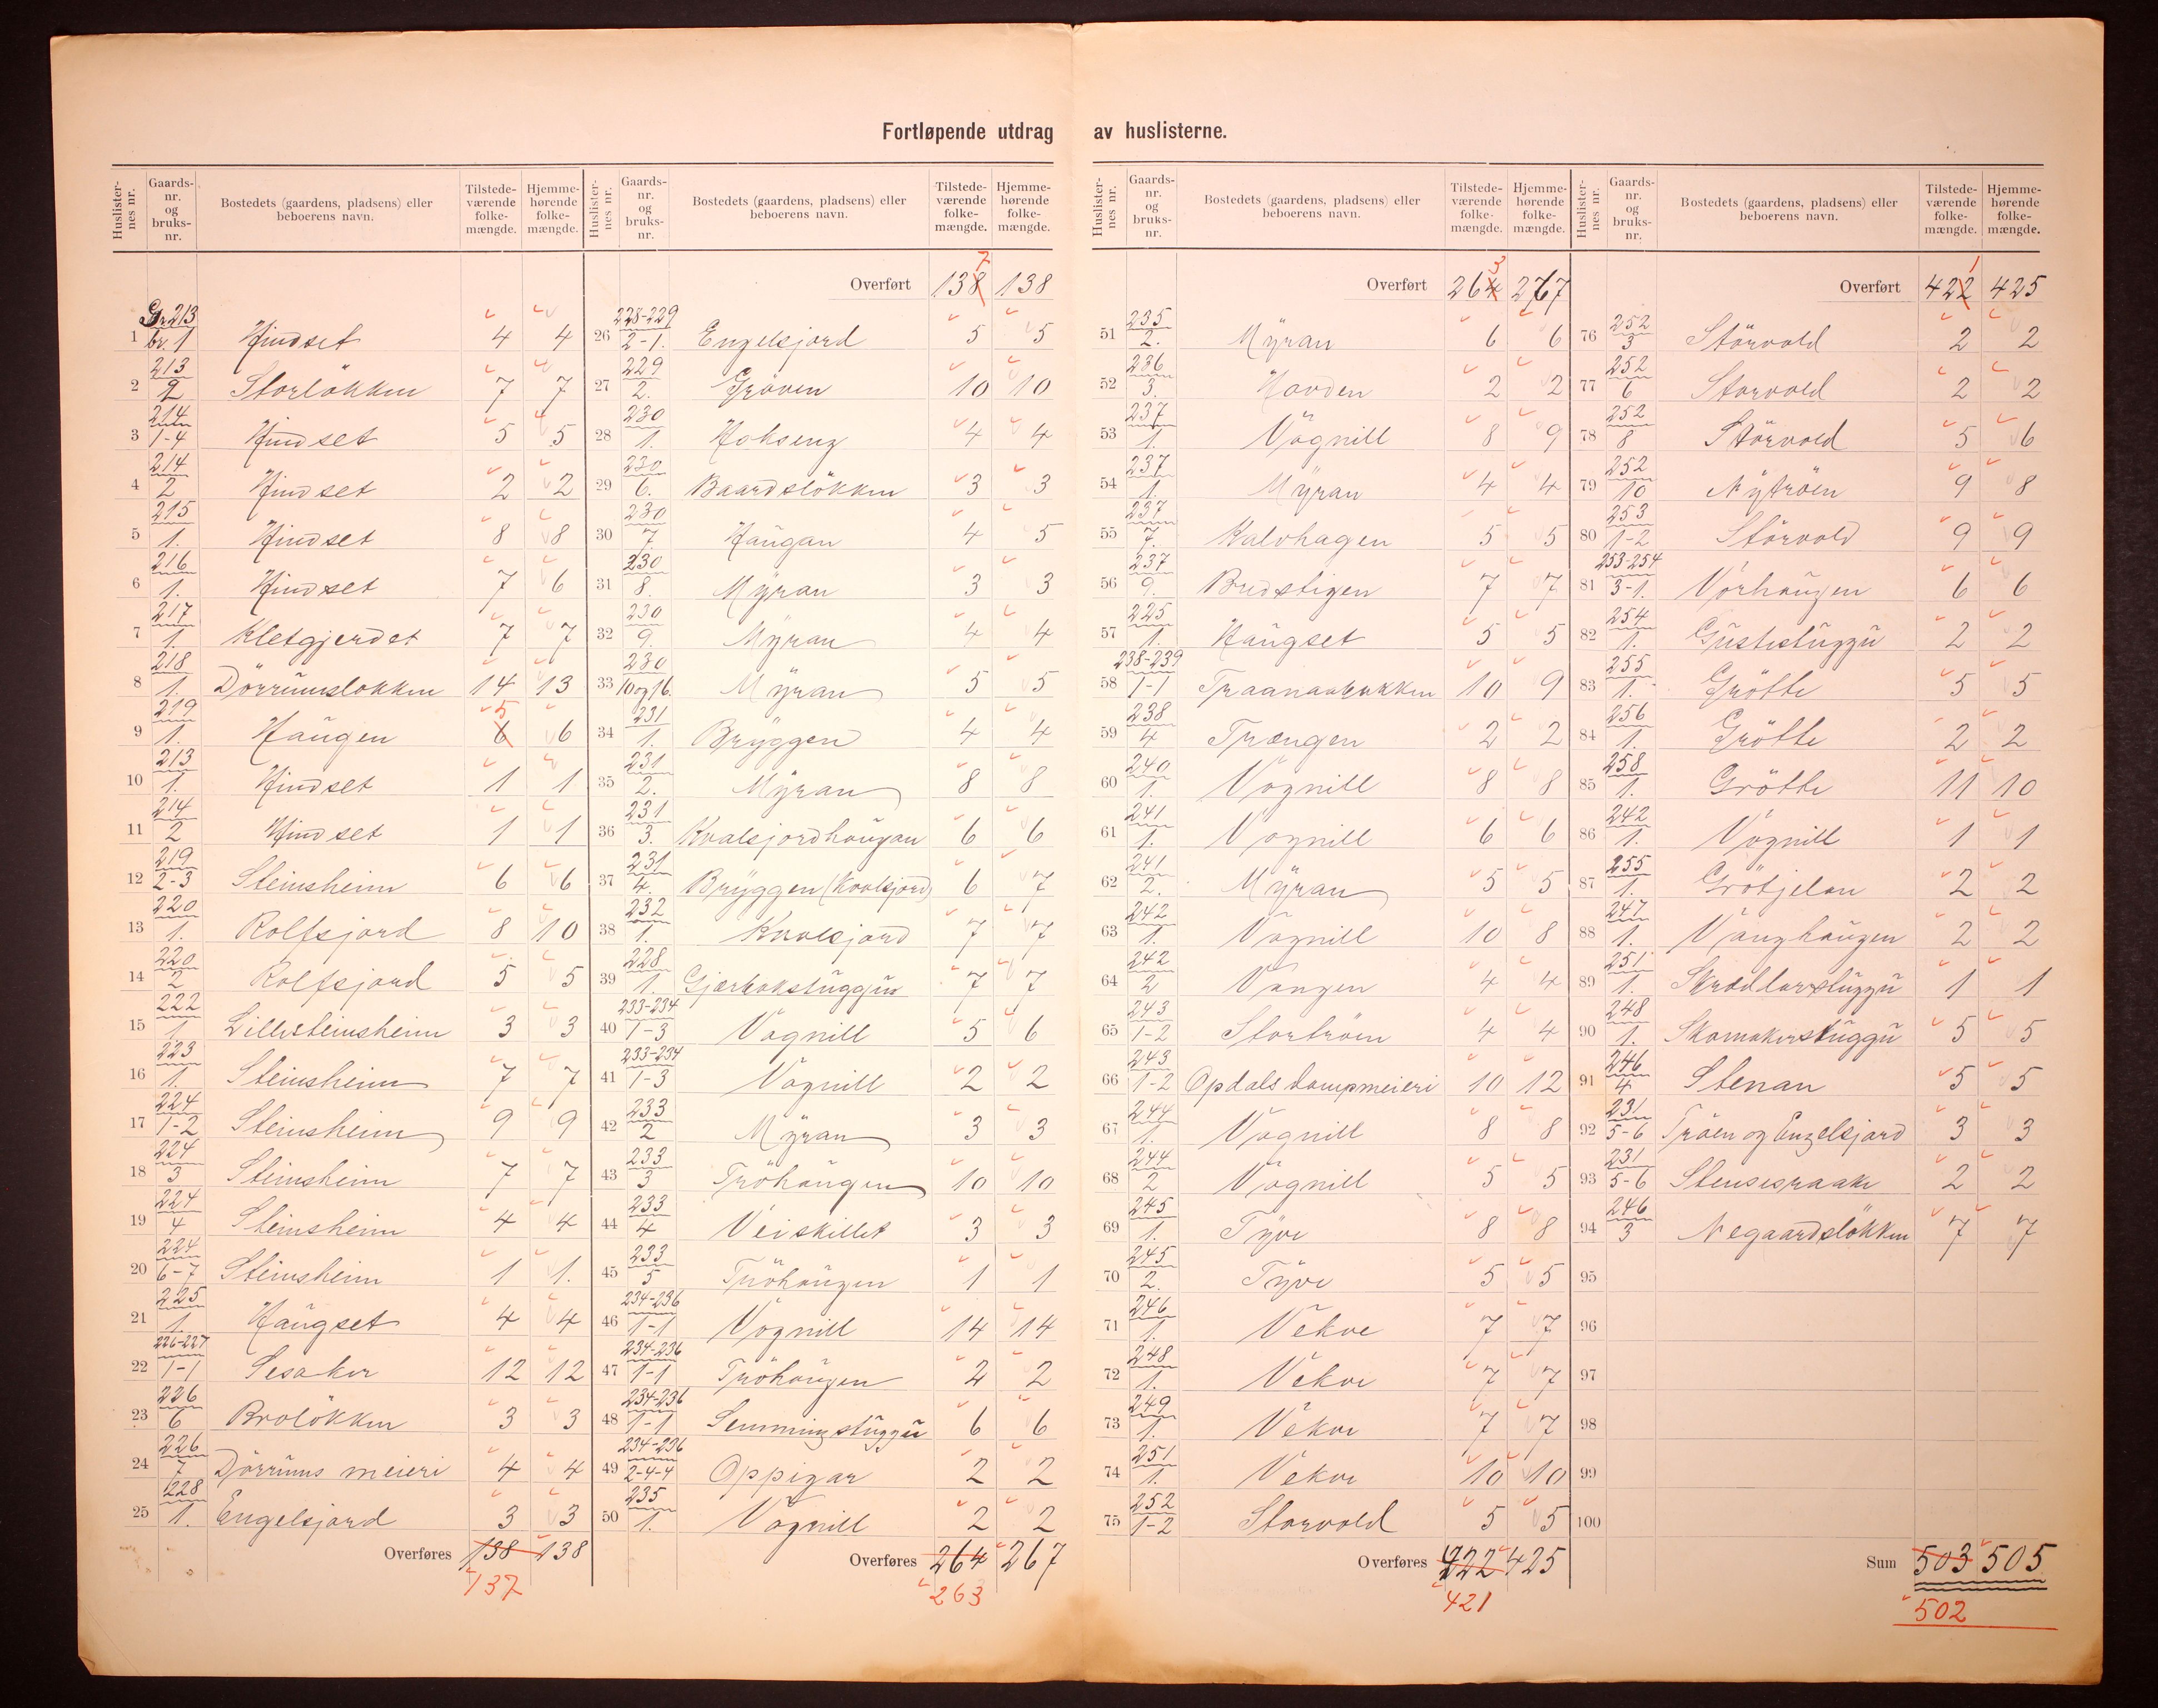 Fortløpende utdrag av huslisterne.
Huslisternes nr. Gaardsnr. og bruksnr. Bostedets (gaardens, pladsens) eller beboerens navn. Tilstedeværende folkemængde. Hjemmehørende folkemængde.
1 Gr. 213 br. 1 Hindset 4 4
2 213 2 Storløkken 7 7
3 214 1-4 Hindset 5 5
4 214 2 Hindset 2 2
5 215 1. Hindset 8 8
6 216 1. Hindset 7 6
7 217 1. Kletgjerdet 7 7
8 218 1. Dørrumsløkken 14 13
9 219 1. Haugen 6 5 6
10 213 1. Hindset 1 1
11 214 2 Hindset 1 1
12 219 2-3 Steinsheim 6 6
13 220 1. Rolfsjord 8 10
14 220 2 Rolfsjord 5 5
15 222 1. Lillesteinsheim 3 3
16 223 1. Steinsheim 7 7
17 224 1-2 Steinsheim 9 9
18 224 3 Steinsheim 7 7
19 224 4 Steinsheim 4 4
20 224 6-7 Steinsheim 1 1.
21 225 1. Haugset 4 4
22 226-227 1-1 Sesaker 12 12
23 226 6 Broløkken 3 3
24 226 7 Dørrums meieri 4 4
25 228 1. Engelsjord 3 3
Overføres 138 138
137
Huslisternes nr. Gaardsnr. og bruksnr. Bostedets (gaardens, pladsens) eller beboerens navn. Tilstedeværende folkemængde. Hjemmehørende folkemængde.
Overført 138 7 138
26 228-229 2-1. Engelsjord 5 5
27 229 2. Grøven 10 10
28 230 1. Hokseng 4 4
29 230 6. Baardsløkken 3 3
30 230 7. Haugan 4 5
31 230 8. Myran 3 3
32 230 9. Myran 4 4
33 230 10 og 16. Myran 5 5
34 231 1. Bryggen 4 4
35 231 2. Myran 8 8
36 231 3. Kvalsjordhaugan 6 6
37 231 4. Bryggen (Kvalsjord) 6 7
38 232 1. Kvalsjord 7 7
39 228 1. 7 7
40 233-234 1-3 Vognill 5 6
41 233-234 1-3 Vognill 2 2
42 233 2 Myran 3 3
43 233 3 Trøhaugen 10 10
44 233 4 Veiskillet 3 3
45 233 5 Trøhaugen 1 1
46 234-236 1-1 Vognill 14 14
47 234-236 1-1 Trøhaugen 2 2
48 234-236 1-1 Semmingstuggu 6 6
49 234-236 2-4-4 Oppigar 2 2
50 235 1. Vognill 2 2
Overføres 264 267
263
Huslisternes nr. Gaardsnr. og bruksnr. Bostedets (gaardens, pladsens) eller beboerens navn. Tilstedeværende folkemængde. Hjemmehørende folkemængde.
Overført 264 3 267
51 235 2. Myran 6 6
52 236 3. Hovden 2 2
53 237 1. Vognill 8 9
54 237 1. Myran 4 4
55 237 7. Kalvhagen 5 5
56 237 9. Brudstigen 7 7
57 225 1. Haugset 5 5
58 238-239 1-1 10 9
59 238 4 Trængen 2 2
60 240 1. Vognill 8 8
61 241 1. Vognill 6 6
62 241 2. Myran 5 5
63 242 1. Vognill 10 8
64 242 2 Vangen 4 4
65 243 1-2 Stortrøen 4 4
66 243 1-2 Opdals dampmeieri 10 12
67 244 1. Vognill 8 8
68 244 2 Vognill 5 5
69 245 1. Tyve 8 8
70 245 2. Tyve 5 5
71 246 1. Vekve 7 7
72 248 1. Vekve 7 7
73 249 1. Vekve 7 7
74 251 1. Vekve 10 10
75 252 1-2 Storvold 5 5
Overføres 422 425
421
Huslisternes nr. Gaardsnr. og bruksnr. Bostedets (gaardens, pladsens) eller beboerens navn. Tilstedeværende folkemængde. Hjemmehørende folkemængde.
Overført 422 1 425
76 252 3 Størvold 2 2
77 252 6 Storvold 2 2
78 252 8 Størvold 5 6
79 252 10 Nytrøen 9 8
80 253 1-2 Størvold 9 9
81 253-254 3-1. Vorhaugen 6 6
82 254 1. Gustustuggu 2 2
83 255 1. Grøtte 5 5
84 256 1. Grøtte 2 2
85 258 1. Grøtte 11 10
86 242 1. Vognill 1 1
87 255 1. Grøtjelan 2 2
88 247 1. Vanghaugen 2 2
89 251 1. Skreddarstuggu 1 1
90 248 1. Skomakerstuggu 5 5
91 246 4 Stenan 5 5
92 231 5-6 Trøen og Engelsjord 3 3
93 231 5-6 2 2
94 246 3 Negaardsløkken 7 7
95
96
97
98
99
100
Sum 503 505
502